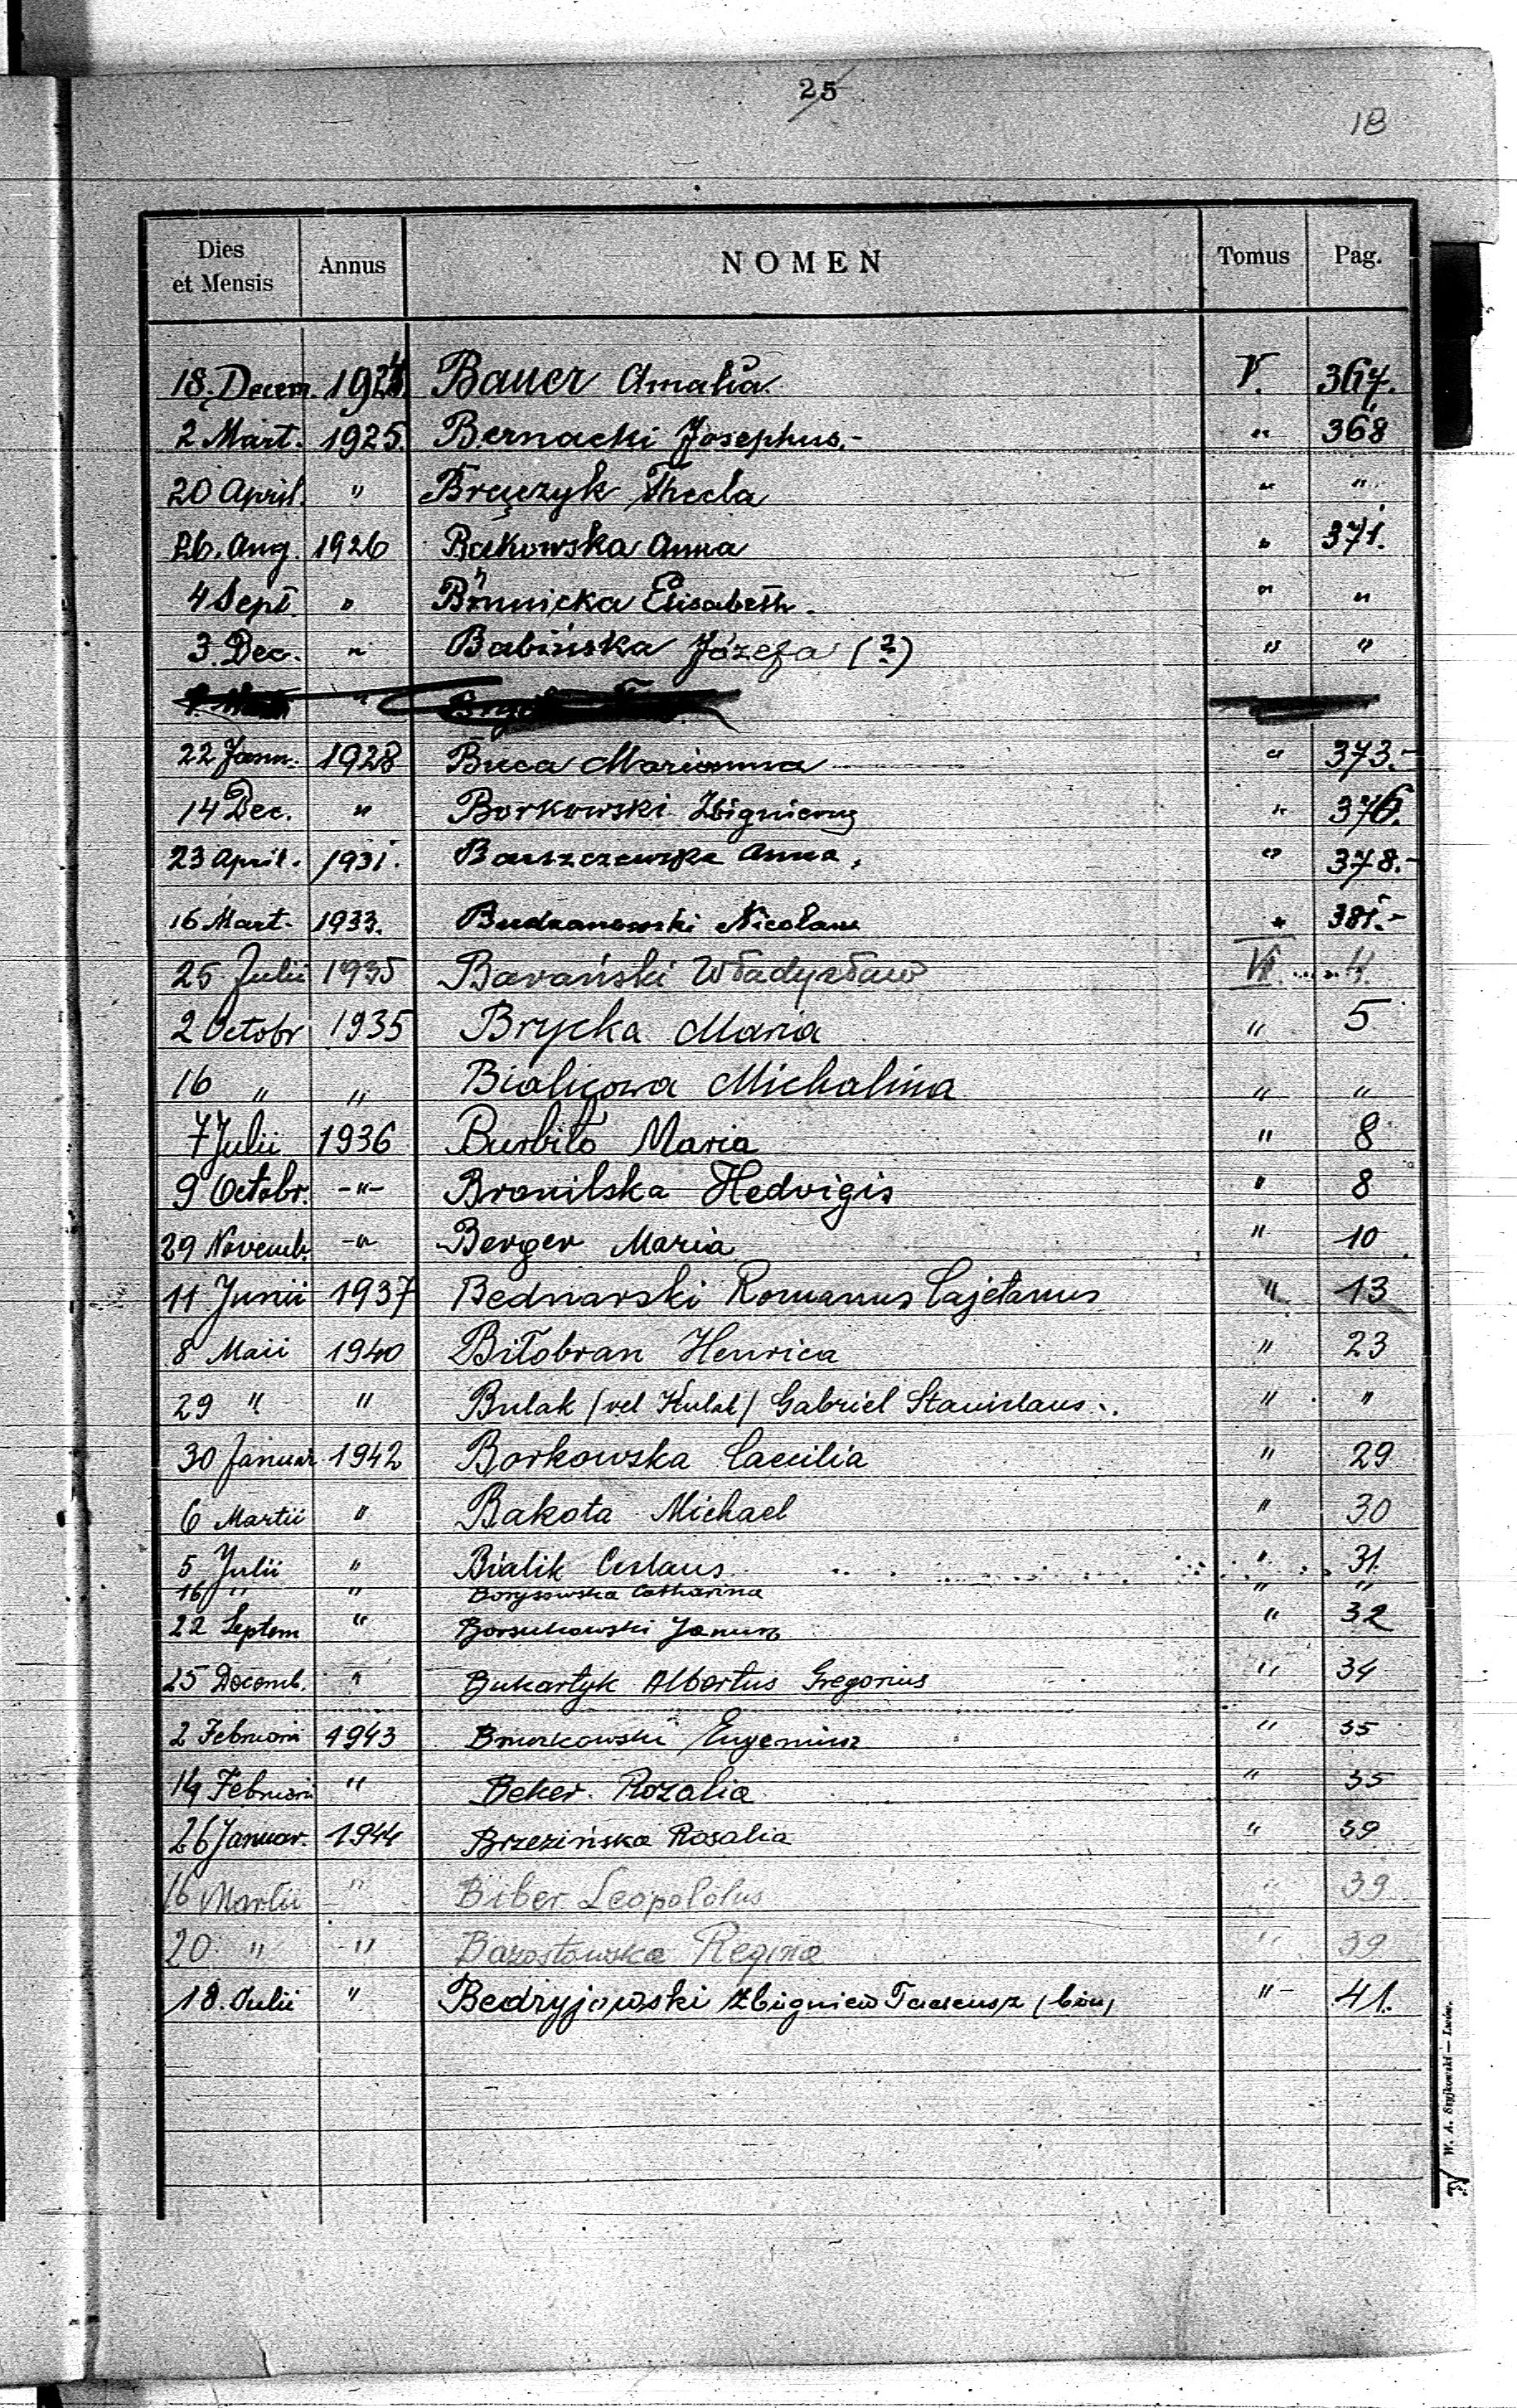 25
18
Dies et Mensis Annus NOMEN Tomus Pag.
18. Decem. 1924 Bauer Amalia. V. 367.
2 Mart. 1925. Bernacki Josephus.- " 368
20 April. " Thecla " "
26. Aug. 1926 Bąkowska Anna " 371.
4 Sept. " Elisabeth. " "
3. Dec. " Babińska Józefa (?) " "
22 Jann. 1928 Buca Marianna " 373.-
14 Dec. " Borkowski Zbigniew " 376.
23 April. 1931. Anna. " 378.-
16 Mart. 1933. Budzanowski Nicolaus " 381.-
25 Julii 1935 Barański Władysław VI. 4.
2 Octobr 1935 Brycka Maria " 5
16 " " Bialicowa Michalina " "
7 Julii 1936 Burbiło Maria " 8
9 Octobr. -"- Bronilska Hedvigis " 8
29 Novemb. -"- Berger Maria " 10
11 Junii 1937 Bednarski Romanus Cajetanus " 13
8 Maii 1940 Biłobran Henrica " 23
29 " " Bulak (vel Kulak) Gabriel Stanislaus. " "
30 Januar 1942 Borkowska Caecilia " 29
6 Martii " Bakota Michael " 30
5 Julii " Bialik Ceslaus " 31.
16 " " Borysowska Catharina " "
22 Septem " Borsukowski Janusz " 32
25 Decemb. " Bukartyk Albertus Gregorius " 34
2 Februarii 1943 Eugeniusz " 35
14 Februarii " Beker Rozalia " 35
26 Januar. 1944 Brzezińska Rosalia " 39
16 Martii " Biber Leopoldus " 39
20 " " Regina " 39
18. Julii " Bedryjowski Zbigniew Tadeusz (bin) " 41.
W. A. Szyjkowski — Lwów.